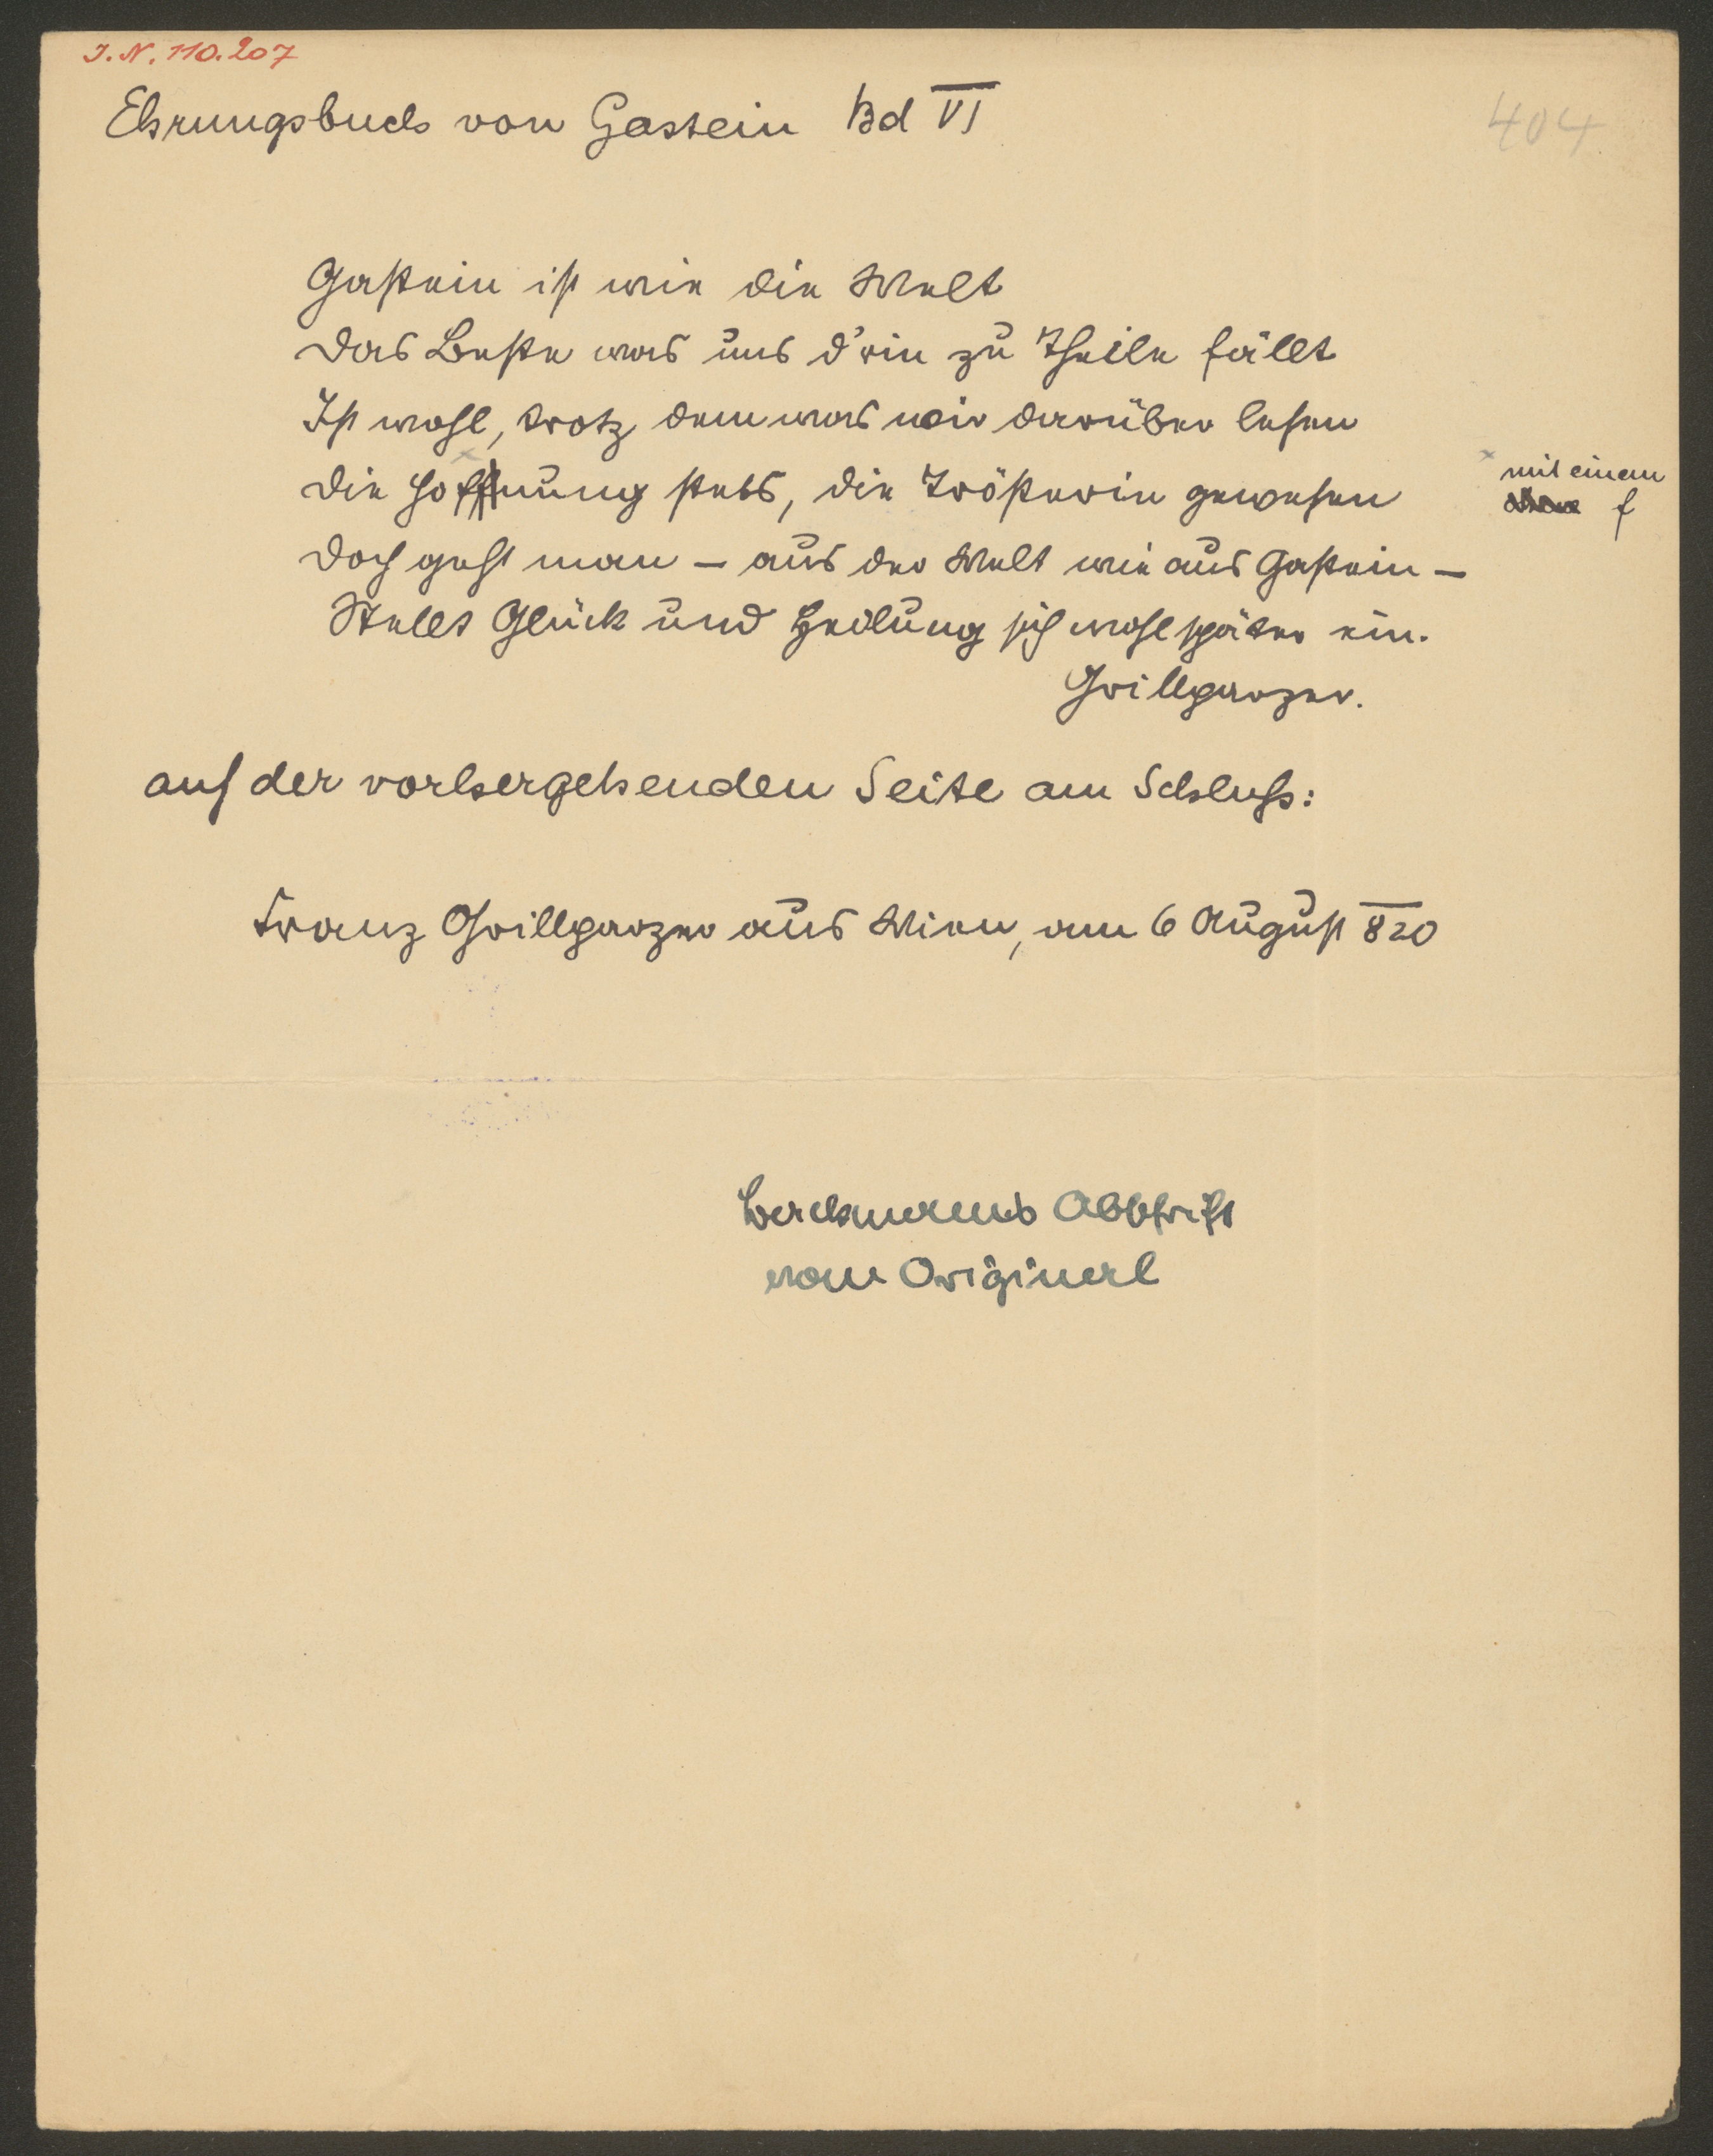 J.N. 110.207
Ehrungsbuch von Gastein Bd VI
404
Gastein ist wie die Welt
Das Beste was uns d'rin zu Theile fällt
Ist wohl, trotz dem was wir darüber lesen
Die Hoffnung stets, die Trösterin gewesen
x mit einem
f
Doch geht man – aus der Welt wie aus Gastein –
Stellt Glück und Heilung sich wohl später ein.
Grillparzer.
auf der vorhergehenden Seite am Schluß:
Franz Grillparzer aus Wien, am 6 August 820
Abschrift
vom Original